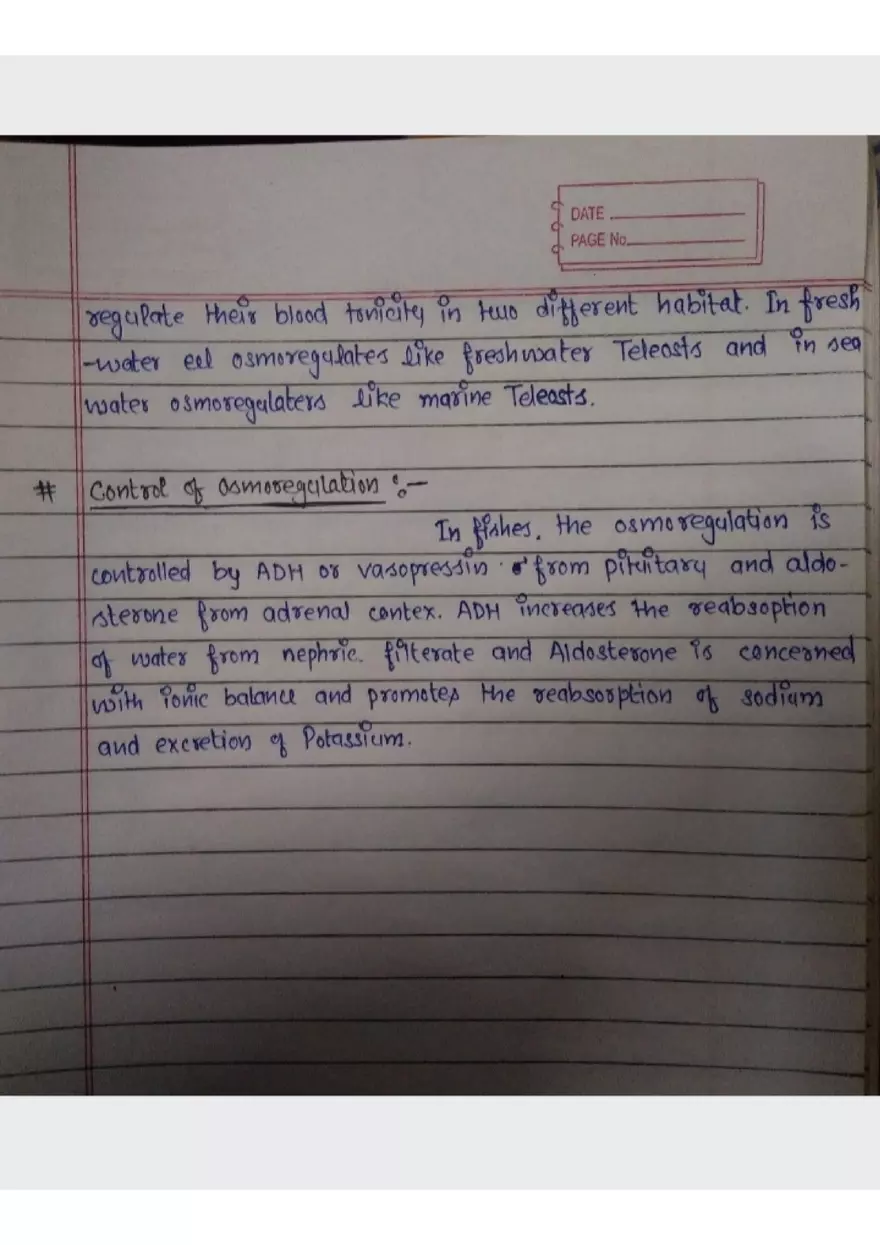 DATE
PAGE No.
regulate their blood tonicity in two different habitat. In fresh
-water eel osmoregulates like freshwater Teleosts and in sea
water osmoregulaters like marine Teleosts.
# Control of Osmoregulation :-
In fishes, the osmoregulation is
controlled by ADH or vasopressin from pituitary and aldo-
sterone from adrenal contex. ADH increases the reabsoption
of water from nephric filterate and Aldosterone is concerned
with ionic balance and promotes the reabsorption of sodium
and excretion of Potassium.